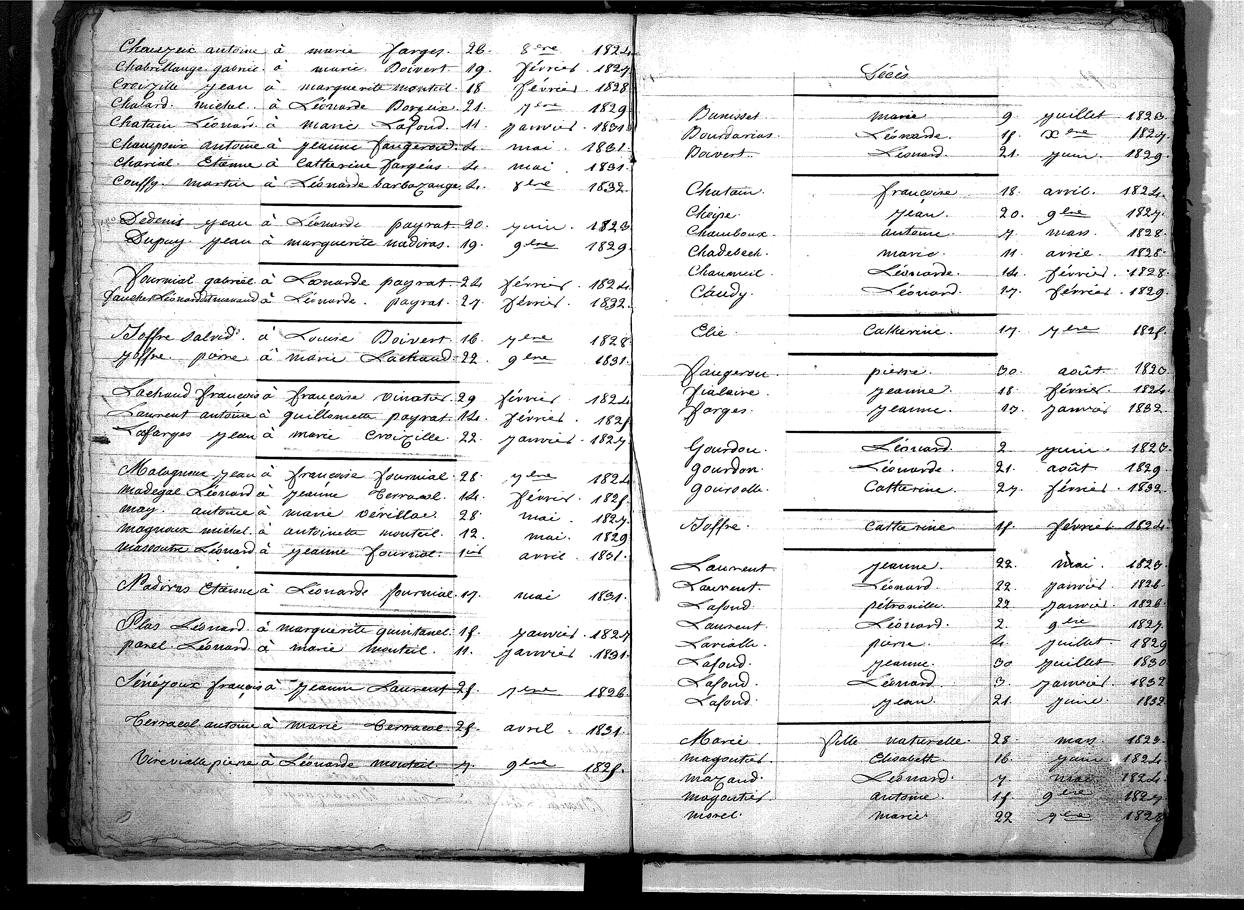 Chauzeix antoine à marie farges. 26. 8ere 1824
Chabrillange gabriel à marie Boivert 19. février 1827
Croizille jean à marguerite monteil 18 février 1828
Chatard michel à Léonarde 21. 7ere 1829
Chatain Léonard à marie Lafond. 11. janvier 1831
antoine à jeanne faugeron 4. mai. 1831.
Etienne à Catherine 4. mai. 1831.
Couffy martin à Léonarde barbazange 4. 8ere 1832.
Dedenis jean à Léonarde payrat 20. juin. 1823
Dupuy jean à marguerite nadiras. 19. 9ere 1829.
fournial gabriel à Léonarde payrat 24 février 1824
faucher Léonard à Léonarde. payrat. 27. février 1832.
Joffre à Louise Boivert 16. 7ere 1828
joffre. pierre à marie Lachaud 22. 9ere 1831.
Lachaud françois à françoise vinatier 29 février. 1824
Laurent antoine à guillomette payrat 14. février. 1825
Lafarges jean à marie Croizille. 22. janvier. 1827
jean à françoise fournial. 28. 1824
madegal Léonard à jeanne Terracol. 14. février. 1825.
may. antoine à marie 28. mai. 1827.
magnoux michel. à antoinette monteil. 12. mai. 1829
Léonard à jeanne fournial. 1er avril. 1831.
Nadiras Etienne à Léonarde fournial. 17. mai 1831.
Plas Léonard à marguerite quintanel. 15. janvier. 1827
panel. Léonard à marie monteil. 11. janvier 1831.
Sénéjoux françois à jeanne Laurent 25. 7ere 1826
Terracol antoine à marie Terracol. 25. avril. 1831.
Virevialle pierre à Léonarde monteil. 7. 9ere 1825.
Décès
marie 9. juillet 1823.
Bourdarias. Léonarde. 15. Xere 1827.
Boivert. Léonard. 21. juin. 1829.
Chatain. françoise 18. avril. 1824.
Cheize. jean. 20. 9ere 1827.
Chamboux. antoine. 7. mars. 1828.
Chadebech. marie 11. avril. 1828.
Chaumeil. Léonarde. 14. février. 1828
Caudy. Léonard. 17. février. 1829.
Elie. Catherine. 17. 7ere 1825.
faugeron. pierre. 30. août. 1823
fialaire. jeanne. 18. février. 1824.
farges. jeanne. 17. janvier 1832.
Gourdon. Léonard. 2. juin. 1823.
gourdon. Léonarde. 21. août. 1829.
Catherine. 27. février. 1832.
Joffre. Catherine 15. février 1824.
Laurent jeanne. 22. mai. 1823.
Laurent. Léonard. 22. janvier 1826.
Lafond. pétronille. 27. janvier. 1826.
Laurent Léonard. 2. 9ere 1827.
Lavialle. pierre. 4. juillet 1829
Lafond. jeanne. 30 juillet. 1830
Lafond. Léonard. 3. janvier. 1832
Lafond. jean. 21. juin. 1832.
Marie fille naturelle. 28. mars 1823.
magoutier. Elisabeth 16. juin. 1824.
mazaud. Léonard. 7. mai. 1824.
magoutier. antoine. 15. 9ere 1827.
morel. marie. 22 7ere 1828